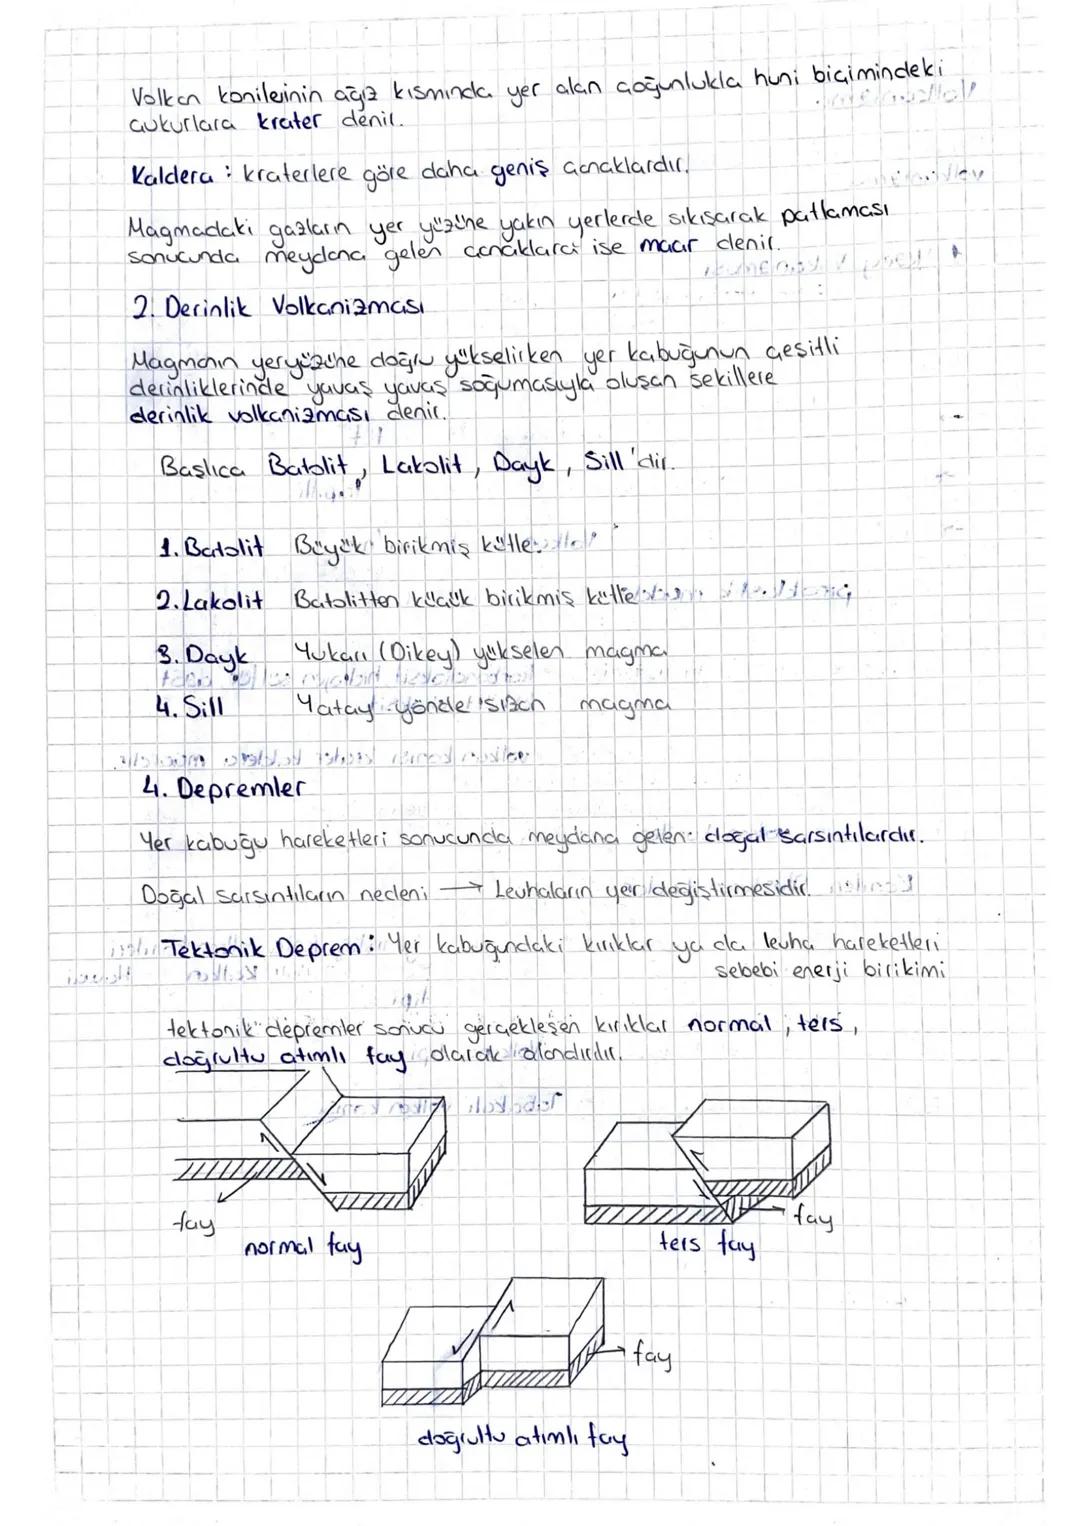 Volkan konileinin ağız kısmında yer alan çoğunlukla huni biçimindeki
çukurlara krater denir.
Kaldera : kraterlere göre daha geniş çanaklardır.
Magmadaki gazların yer yüzüne yakın yerlerde sıkışarak patlaması
sonucunda meydana gelen çanaklara ise maar denir.
2. Derinlik Volkanizması
Magmanın yeryüzüne doğru yükselirken yer kabuğunun çeşitli
derinliklerinde yavaş yavaş soğumasıyla oluşan şekillere
derinlik volkanizması denir.
Başlıca Batolit, Lakolit, Dayk, Sill'dir.
1. Batolit Büyük birikmiş kütle.
2. Lakolit Batolitten küçük birikmiş kütle
3. Dayk Yukarı (Dikey) yükselen magma
4. Sill Yatay yönde sızan magma
4. Depremler
Yer kabuğu hareketleri sonucunda meydana gelen doğal sarsıntılardır.
Doğal sarsıntıların nedeni → Levhaların yer değiştirmesidir.
Tektonik Deprem : Yer kabuğundaki kırıklar ya da levha hareketleri
sebebi enerji birikimi
tektonik depremler sonucu gerçekleşen kırıklar normal, ters,
doğrultu atımlı fay olarak alandırılır.
fay
normal fay
fay
ters fay
fay
doğrultu atımlı fay